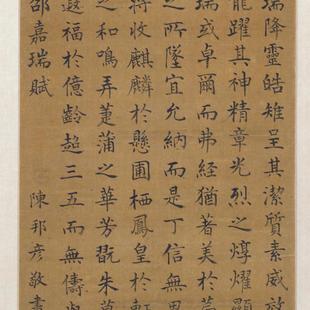 瑞降靈皓雉呈其潔質素威效
龍躍其神精章光烈之焞燿顯
瑞或卓爾而弗経猶著美於篇
之所墜宜允納而是丁信無思
將收麒麟於懸圃栖鳳皇於軒
之和鳴弄萐蒲之華芳翫朱草
遐福於億齡超三五而無儔
邵嘉瑞賦 陳邦彥敬書